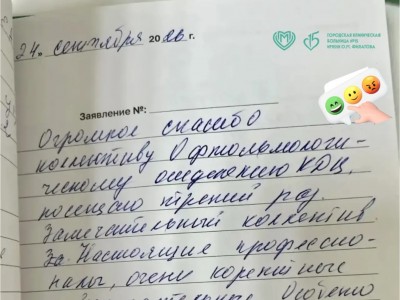 24. сентября 2026 г.
ГОРОДСКАЯ КЛИНИЧЕСКАЯ
БОЛЬНИЦА №15
ИМЕНИ О.М. ФИЛАТОВА
Заявление №:
Огромное спасибо
коллективу Офтальмологи-
ческому отделению КДЦ,
посещаю третий раз.
Замечательный коллектив.
За Настоящие професcио-
налы, очень
Особено